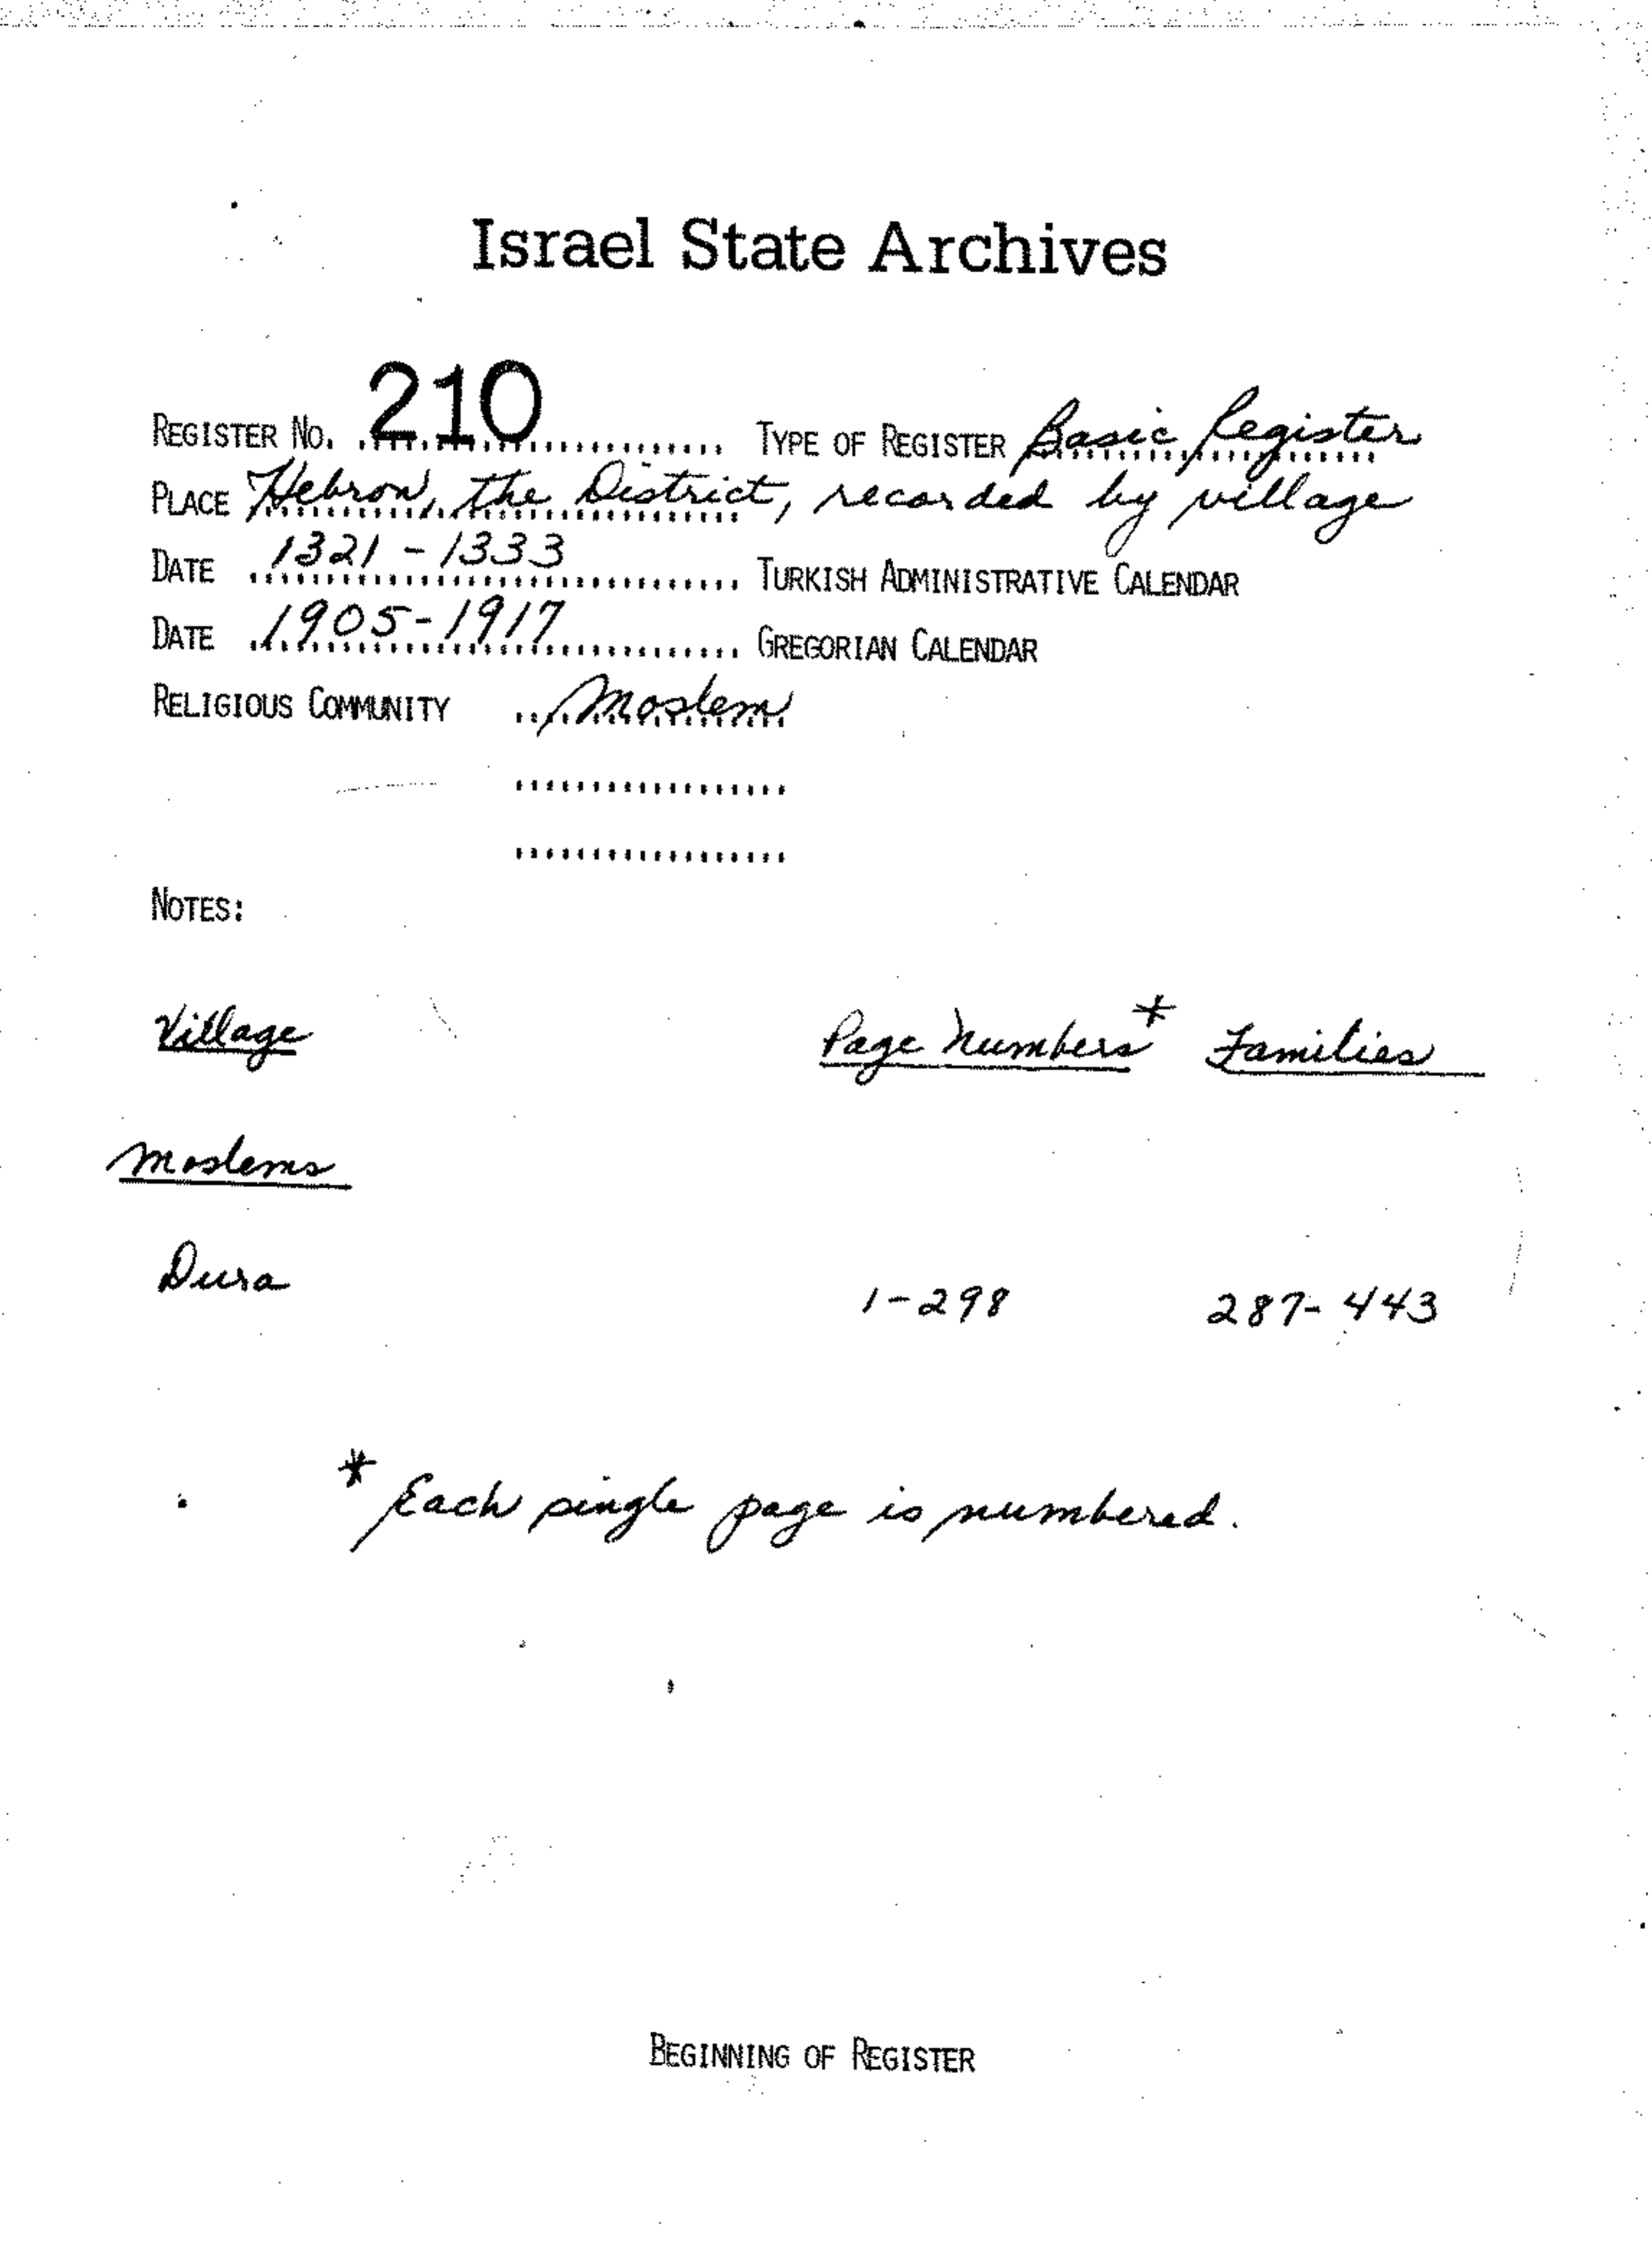 Israel State Archives
REGISTER No. 210 TYPE OF REGISTER Basic Register
PLACE Hebron, the District, recorded by village
DATE 1321-1333 TURKISH ADMINISTRATIVE CALENDAR
DATE 1905-1917 GREGORIAN CALENDAR
RELIGIOUS COMMUNITY Moslem
NOTES:
Village Page Numbers* Families
Moslems
Dura 1-298 287-443
* Each single page is numbered.
BEGINNING OF REGISTER